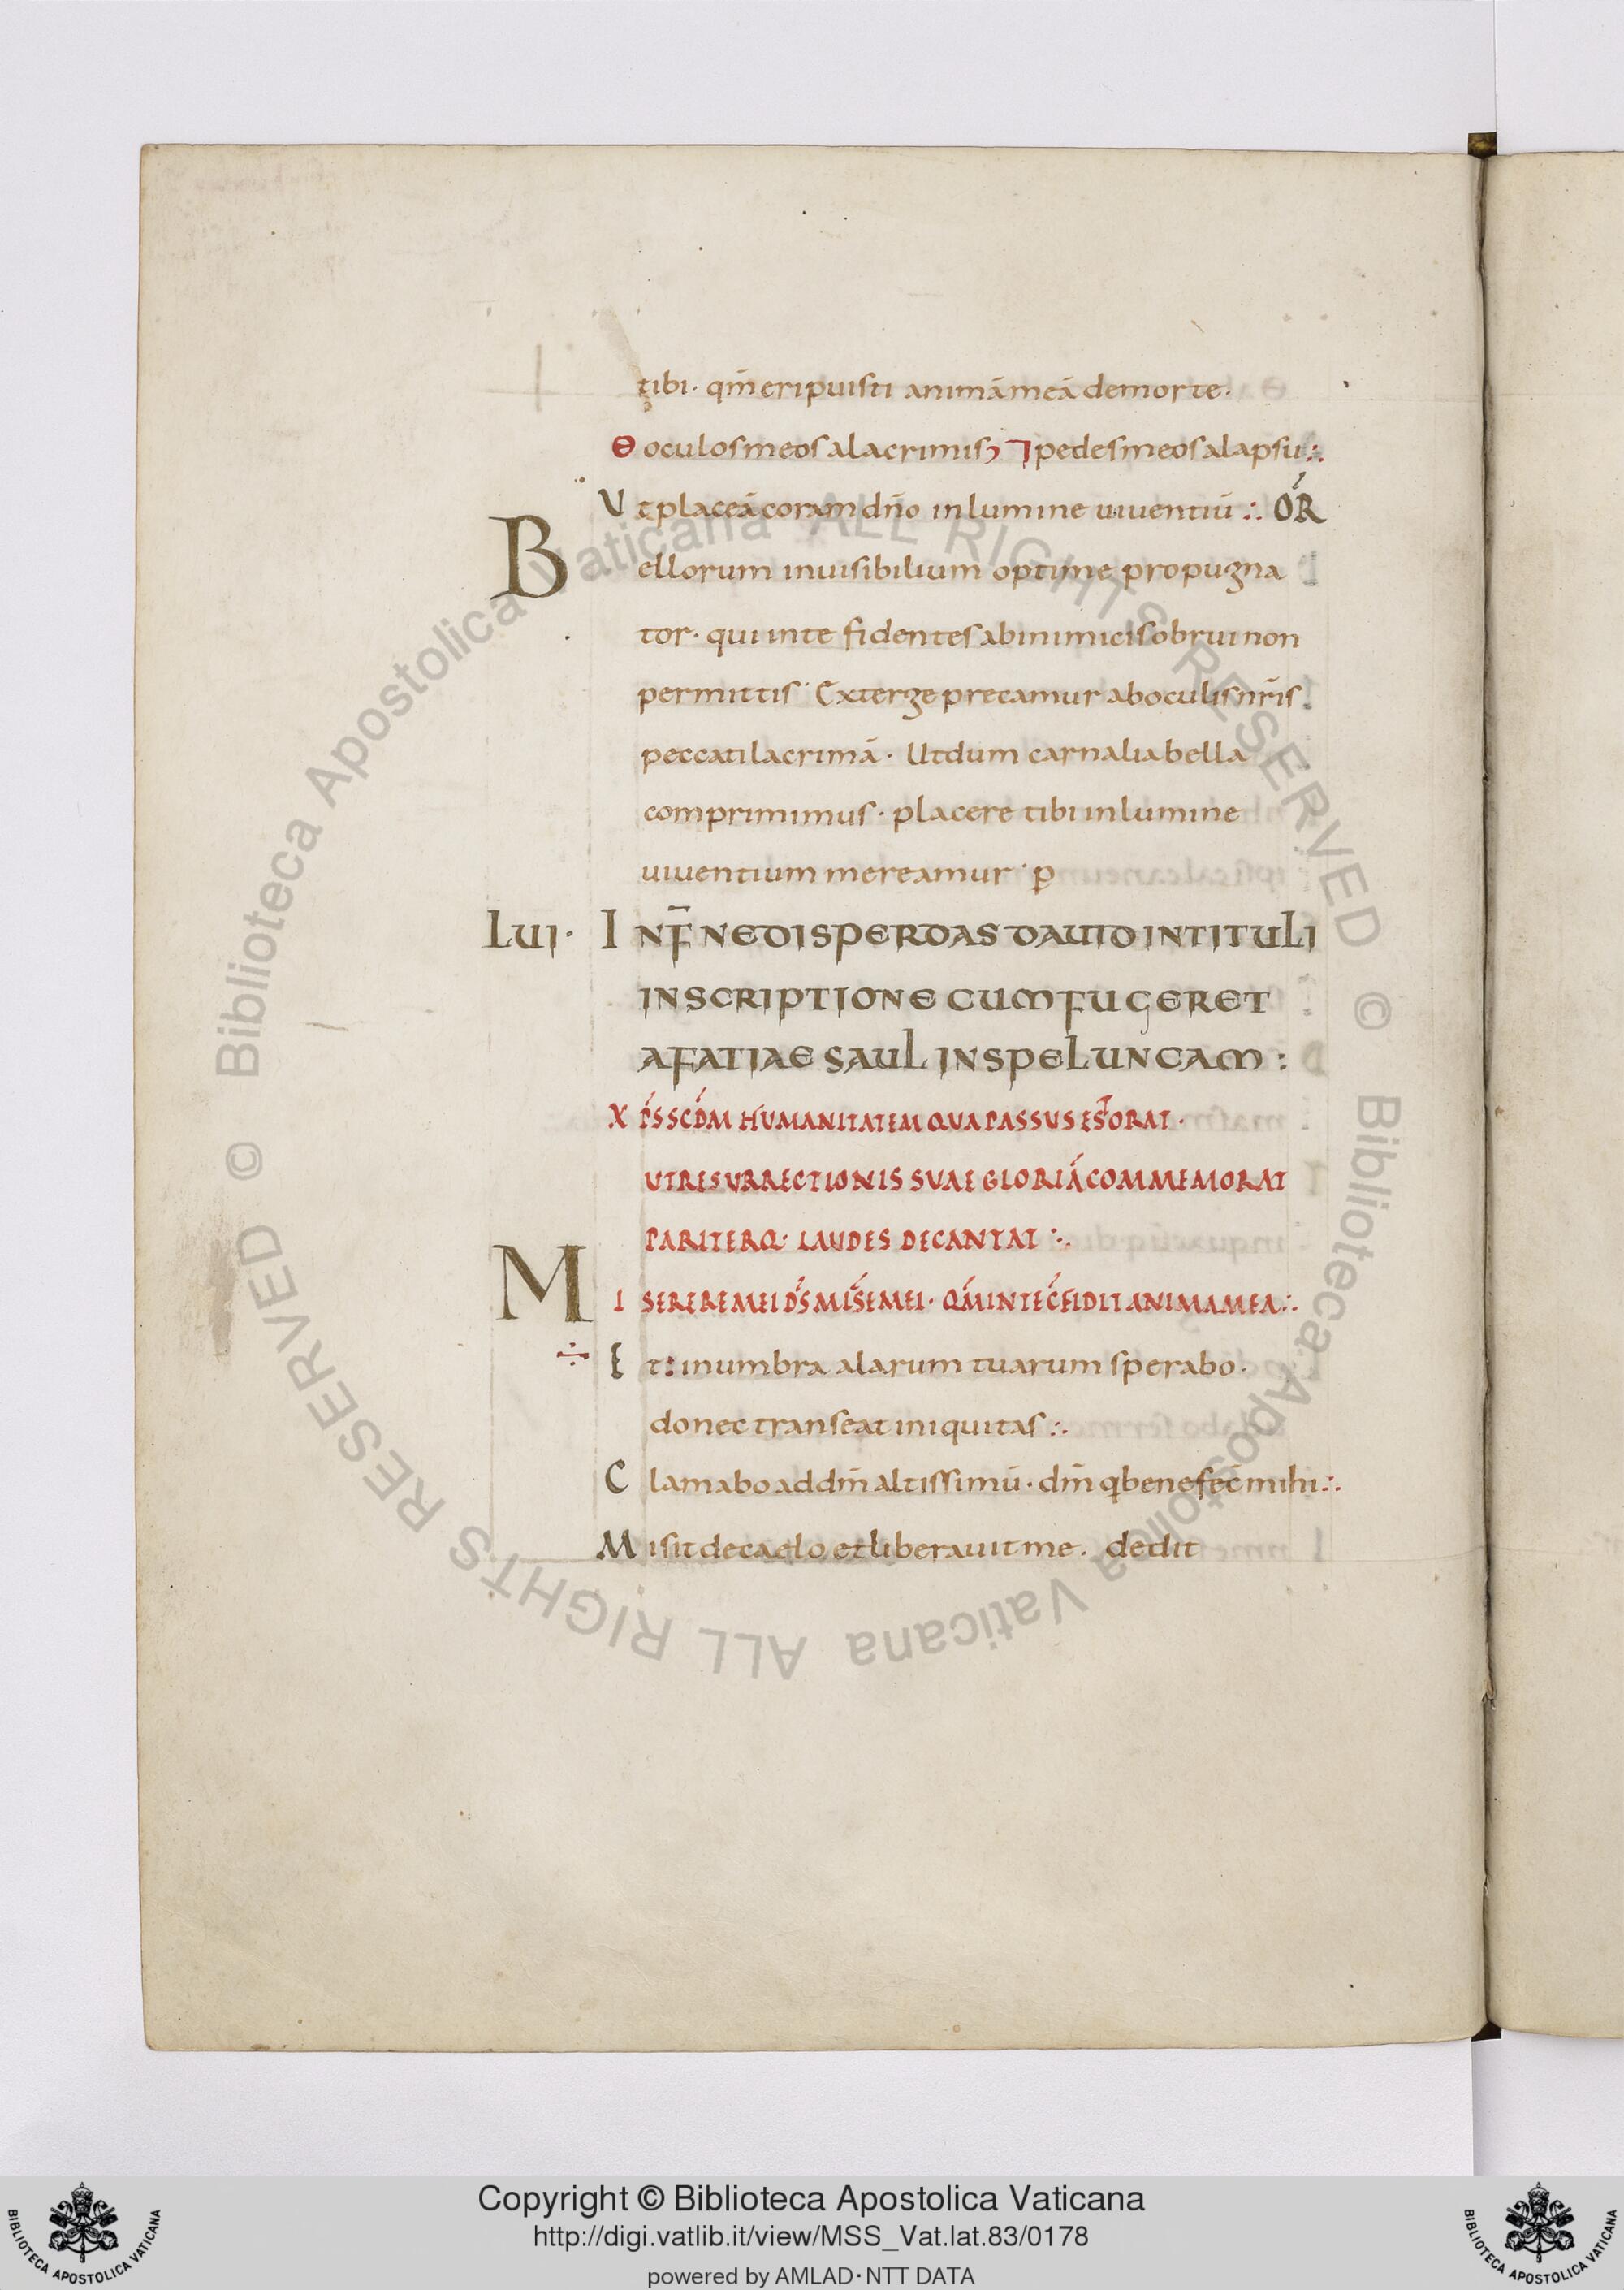 tibi· qm̄ eripuisti animā meā demorte·
Θ oculos meos alacrimis ⁊ pedes meos alapsu ∴
Ut placeā coram dn̄o inlumine uiuentiū ∴ OR̄
Bellorum inuisibilium optime propugna
tor· qui inte fidentes abinimicis obrui non
permittis· Exterge precamur aboculis nr̄is
peccati lacrimā· Ut dum carnalia bella
comprimimus· placere tibi inlumine
uiuentium mereamur· p̄
LUI· IN F̄ NE DISPERDAS DAUID IN TITULI
INSCRIPTIONE CUM FUGERET
A FATIAE SAUL IN SPELUNCAM :
XP̄S SCD̄M HUMANITATEM QUA PASSUS EST ORAT·
UT RESURRECTIONIS SUAE GLORIĀ COMMEMORAT
PARITERQ· LAUDES DECANTAT ∴
MISERERE MEI D̄S MIS̄E MEI· QM̄ IN TE C̄FIDIT ANIMA MEA ∴
÷ Et: inumbra alarum tuarum sperabo·
donec transeat iniquitas ∴
Clamabo ad dm̄ altissimū· dm̄ q benefec̄ mihi ∴
Misit decaelo et liberauit me· dedit
© Biblioteca Apostolica Vaticana ALL RIGHTS RESERVED
© Biblioteca Apostolica Vaticana ALL RIGHTS RESERVED
Copyright © Biblioteca Apostolica Vaticana
http://digi.vatlib.it/view/MSS_Vat.lat.83/0178
powered by AMLAD·NTT DATA
BIBLIOTECA APOSTOLICA VATICANA
BIBLIOTECA APOSTOLICA VATICANA